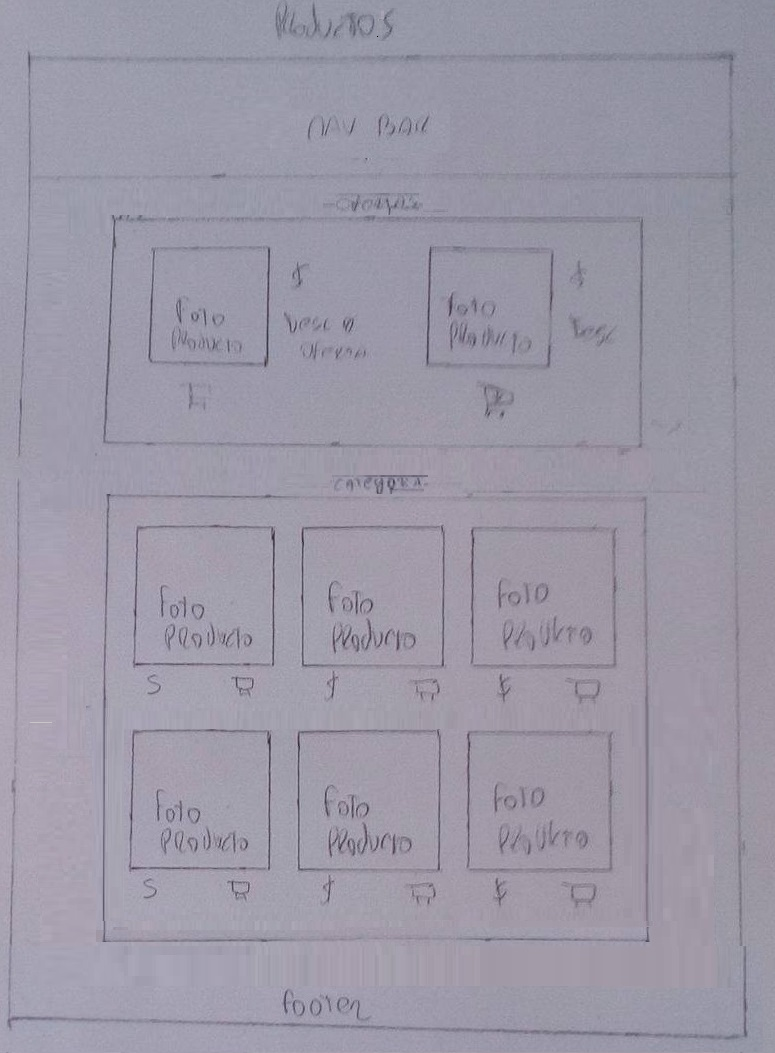 Productos
NAV BAR
Foto
Producto
$
Desc o
oferta
Foto
Producto
$
Desc
Foto
Producto
Foto
Producto
Foto
Producto
S
$
$
Foto
Producto
Foto
Producto
Foto
Producto
S
$
$
footer